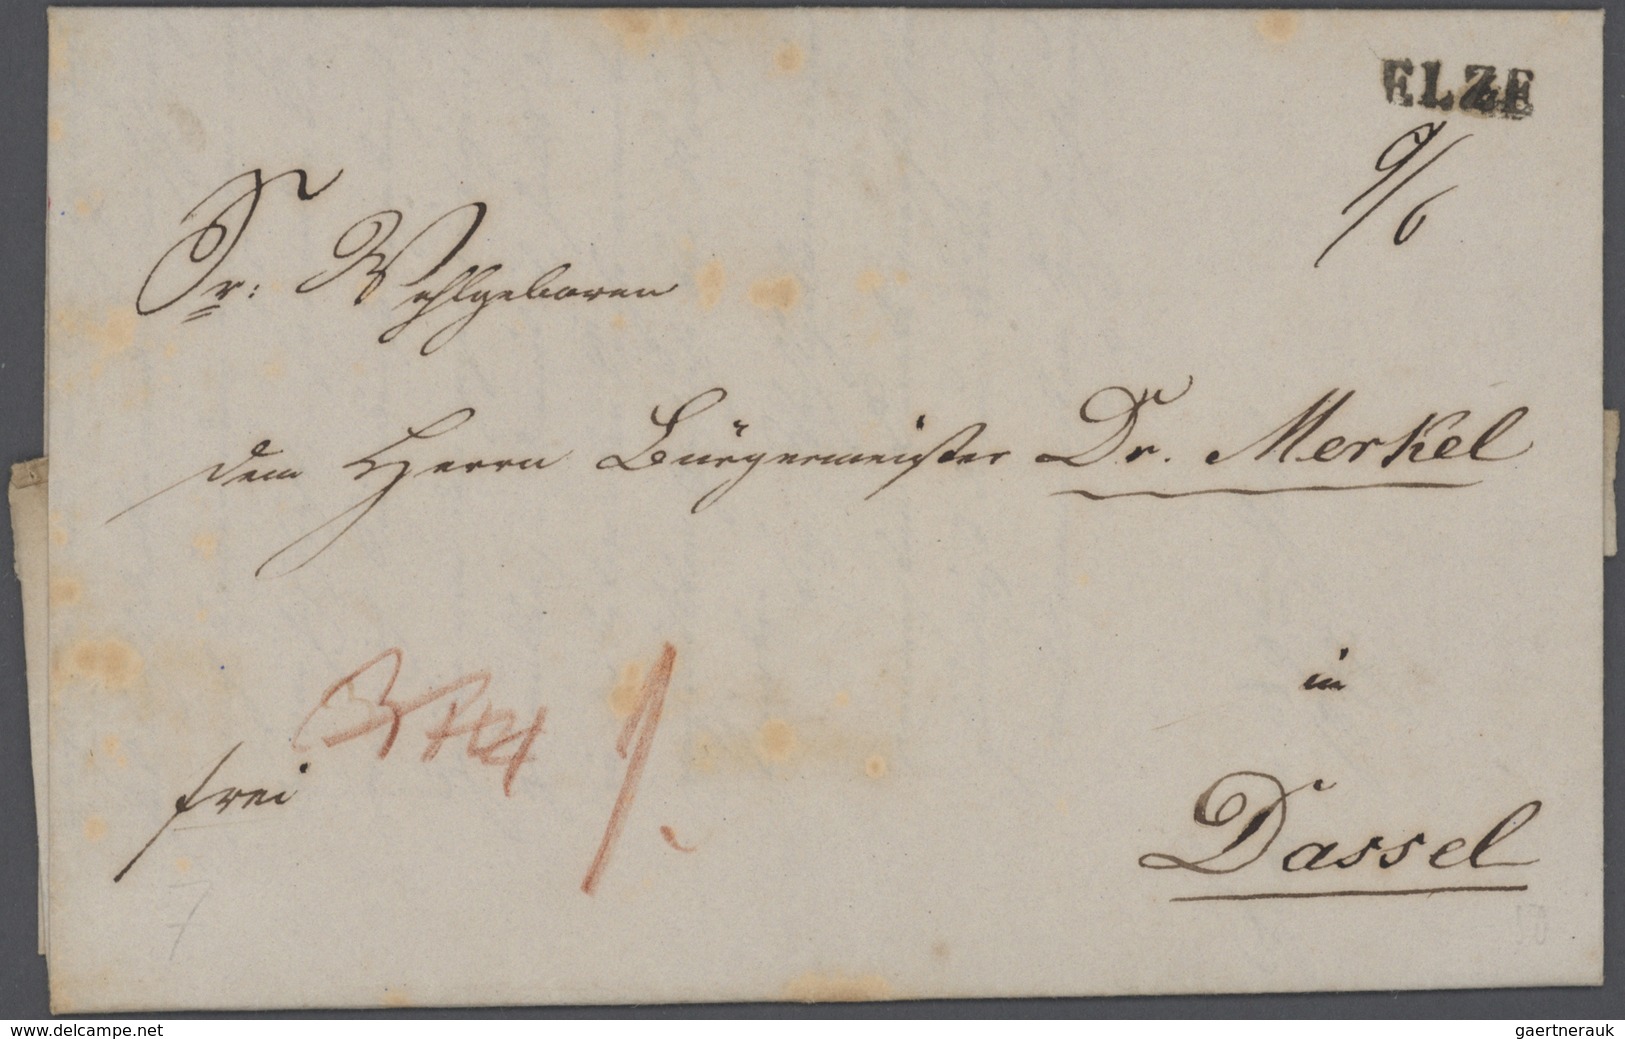 ELZE
9/6
Sr: Wohlgeboren
dem Herrn Bürgermeister Dr. Merkel
in
frei
Dassel
7
www.delcampe.net
gaertnerauk